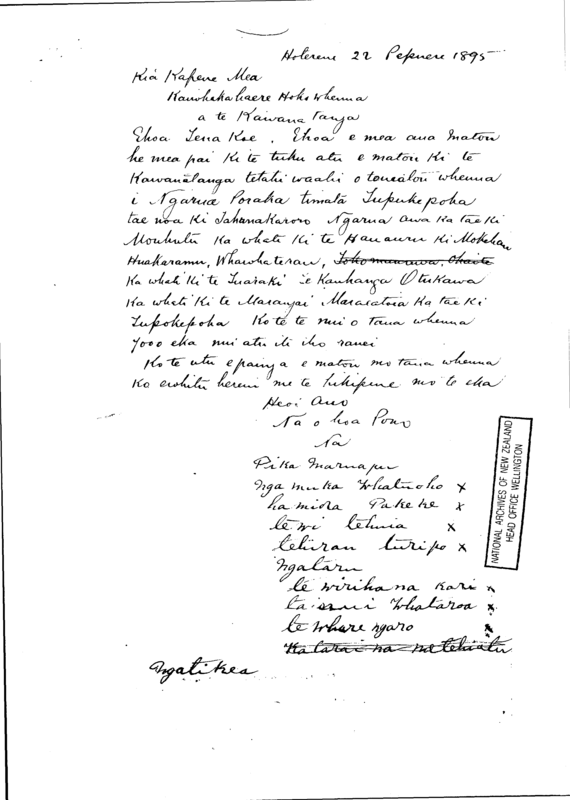 Hoterene 22 Pepuere 1895
Kia Kapene Mea
Kaiwhakahaere Hoko Whenua
a te Kawana Tanga
Ehoa Tena Koe. Ehoa e mea ana matou
he mea pai ki te tuku atu e matou ki te
Kawanatanga tetahi waahi o to matou whenua
i Ngarua Poraka timata Tupukepoka
tae noa ki Tahanakaroro Ngarua awa ka tae ki
Mouhutu ka whati ki te Hauauru ki Mokehau
Huakaramu, Whawhateran,
ka whati ki te Tuaraki
Otukawa
ka whati ki te Marangai
ka tae ki
Tupokepoka Ko te te nui o tana whenua
7000 eka nui atu iti iho ranei
Ko te utu e painga e matou mo tana whenua
Ko e whitu hereni me te hikipene mo te eka
Heoi Ano
Na o hoa Pono
Na
Pika
Nga muka Whatuoho x
ha miora Pakeke x
te wi tehuia x
teturan turipo x
Ngataru
te wirihana kari x
Whataroa x
te whare ngaro x
Ngatikea
NATIONAL ARCHIVES OF NEW ZEALAND
HEAD OFFICE WELLINGTON